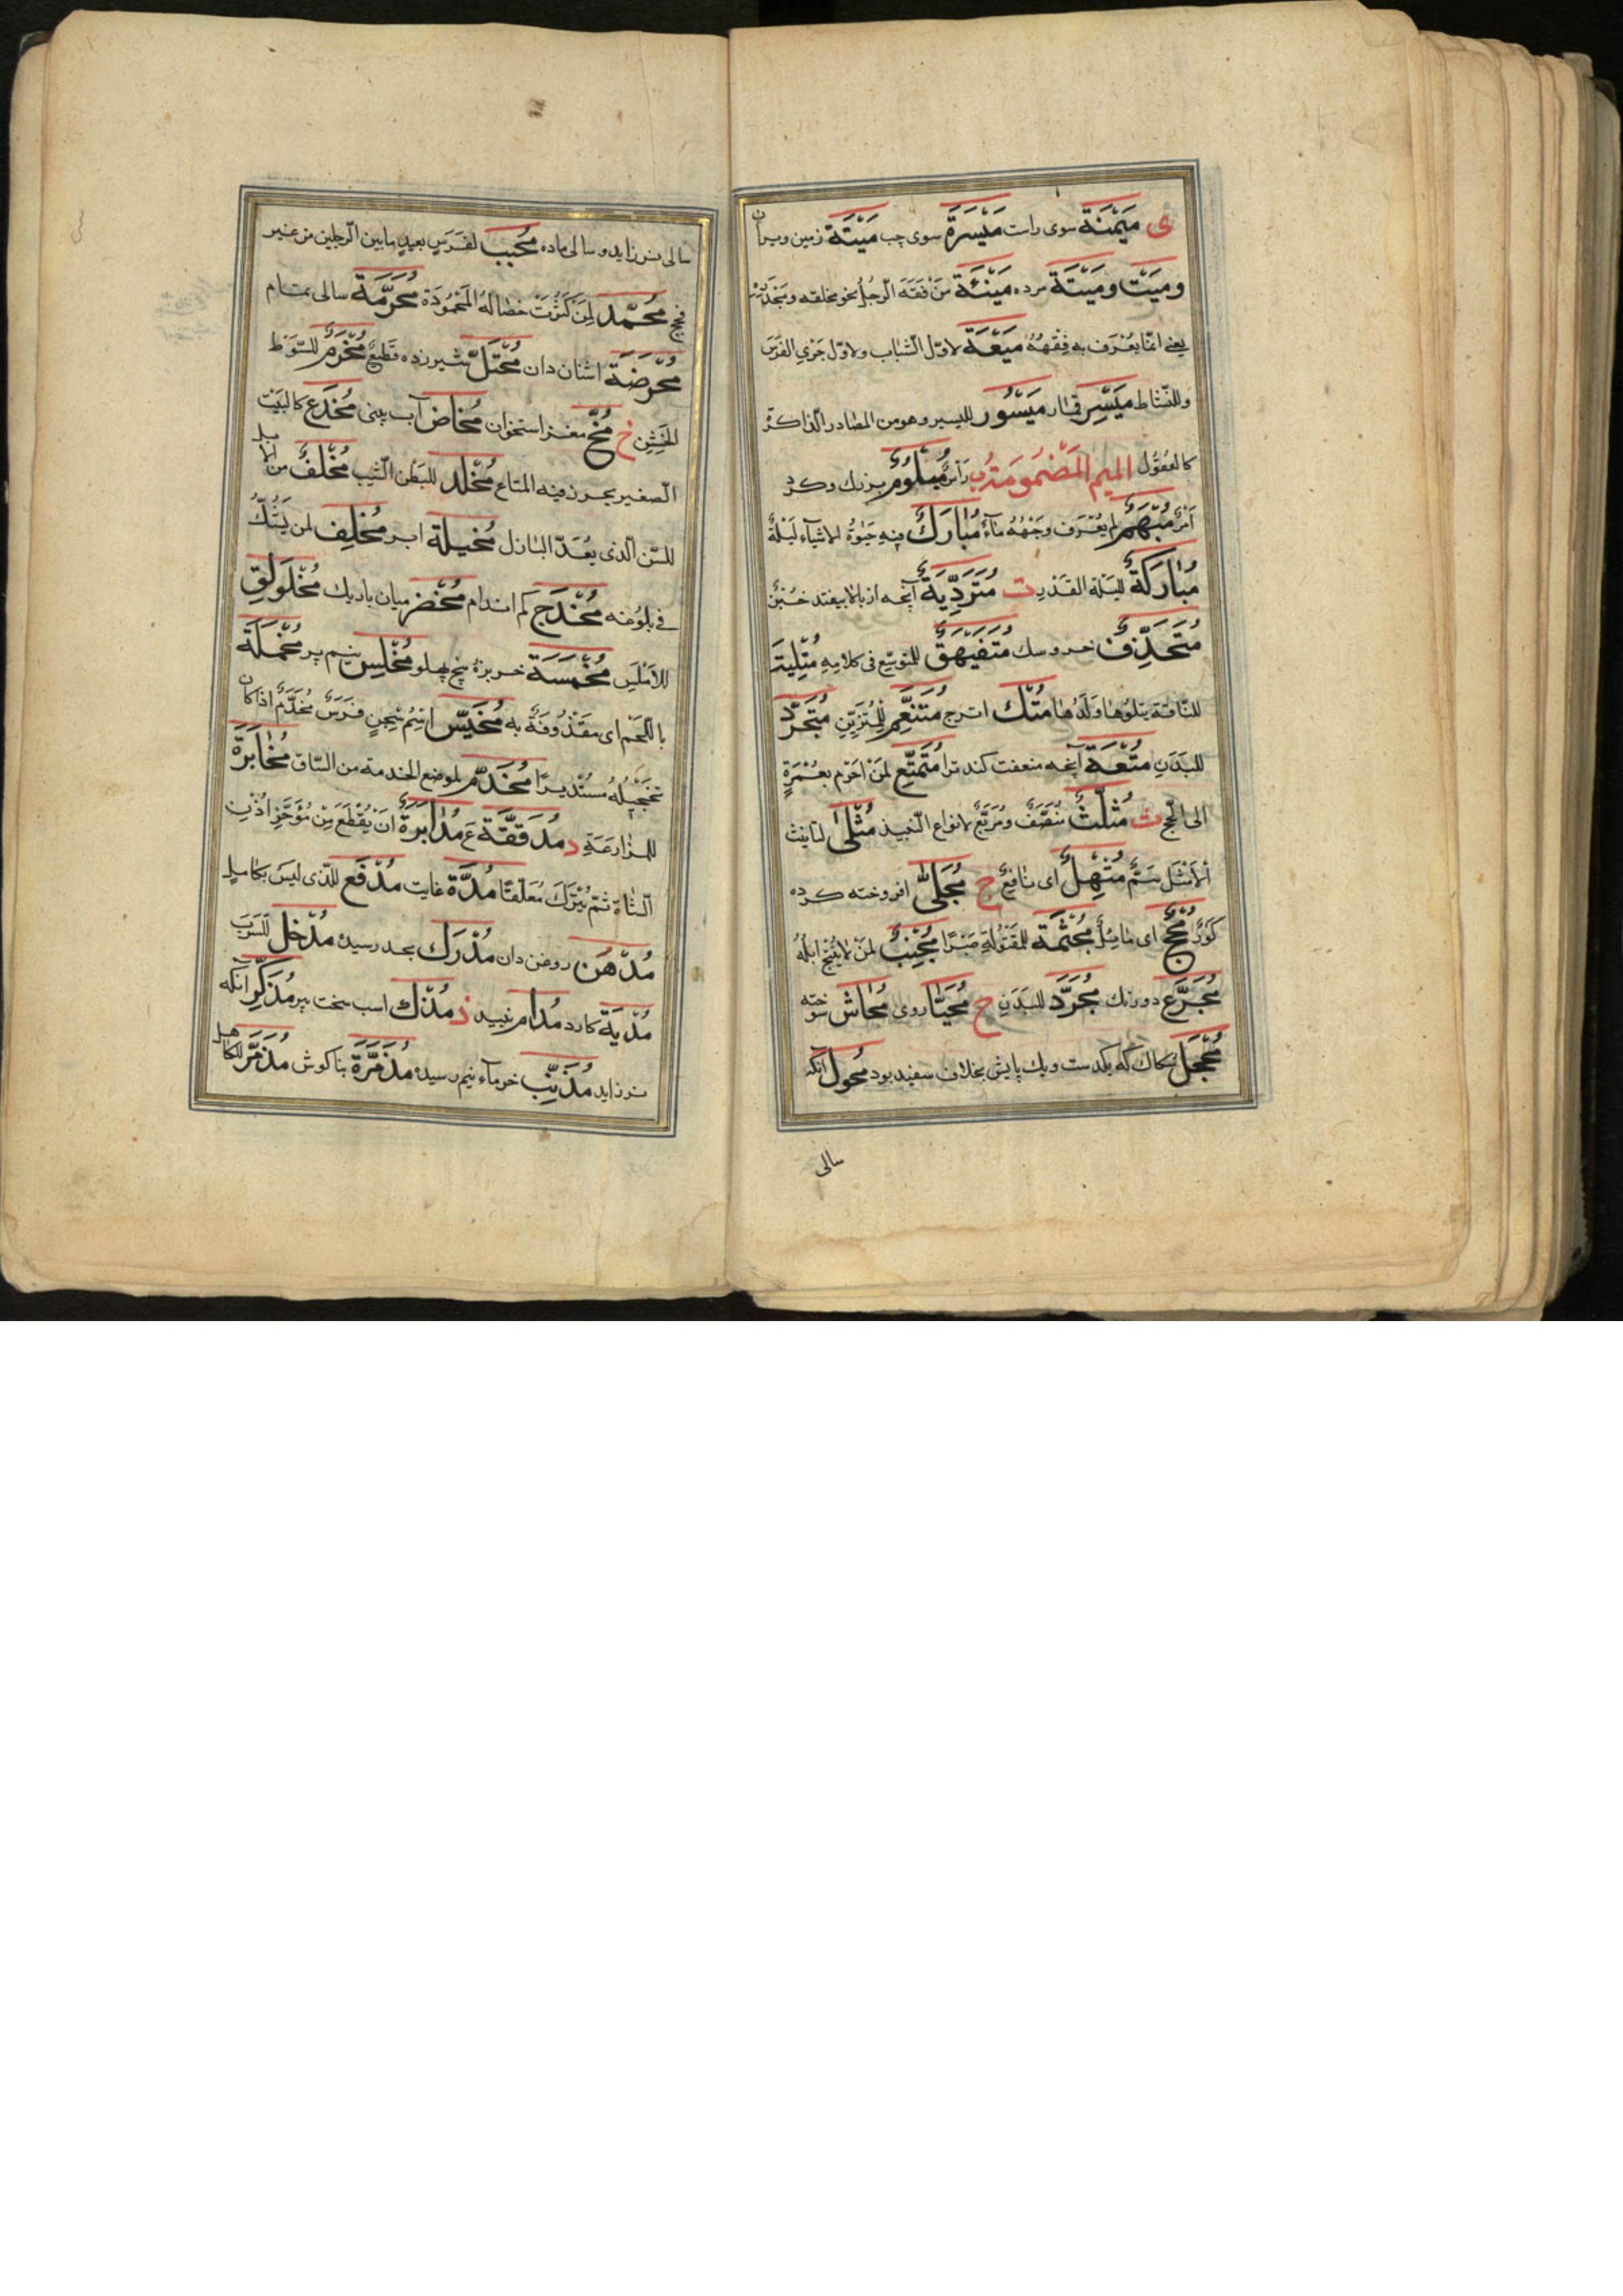 ى مَيْمَنَة سوى راست مَيْسَرَة سوى چپ مَيْتَة زمين ويران
وميّت وميّتة مرده مَيْنَة مَنْ فقه الرجل
يعنى انما يعرف به فقهه مَيْعَة لاوّل الشباب ولاوّل جرى الفرس
وللنشاط مَيْسِر قمار مَيْسُور لليسير وهو من المصادر الذاكر
كالمعقول الميم المضمومة ب رأسٌ مُبَلْوُم بزرك وكرد
أمرٌ مُبْهَمٌ لم يعرف وجهه ماءٌ مُبارَكٌ فيه حيوة الاشياء ليلةٌ
مُبارَكةٌ لليلة القدر ت مُتَرَدِّيَةٌ آنچه از بالا بيفتد خبزٌ
مُتَحَذِّفٌ خروسك مُتَفَيْهِقٌ للمتوسّع فى كلامه مُتْلِيَة
للناقة يتلوها ولدها مُتْك اترج مُتَنَعِّم للمتزيّن مُتَجَرَّد
للبدن مُتْعَة آنچه منفعت كند ترا مُتَمَتِّع لمن احرم بعمرةٍ
الى الحج ث مُثَلَّثٌ منصّفٌ ومربّعٌ لانواع النبيذ مُثْلى لتأنيث
الامثل سمّ مُثْمِلٌ اى ناقع ج مُجَلّى افروخته كرده
كورٌ مُجِحٌّ اى مايلٌ مُجَثَّمَة للمقتولة صبرًا مُجَنِّبٌ لمن لا ينتج ابله
مُجَزَّع دو رنك مُجَرَّد للبدن ح مُحَيّا روى مُحاش سوخته
مُحَجَّل كه يكدست ويك پايش بخلاف سفيد بود مُحْوِل آنكه
سالى
سالى نر زايد و سالى ماده مُحَنَّب لفرسٍ بعيدٍ ما بين الرجلين من غير
فحج مُحَمَّد لمن كثرت خصاله المحمودة مُحَرَّمَة سالى تمام
مُحْرُضَة اشنان دان مُحْتَلّ شير زده قطيعٌ مُحَرَّم للسوط
الخشن خ مُخّ مغز استخوان مُخاض آب بينى مُخْدَع كالبيت
الصغير يحرز فيه المتاع مُخْلِد للبطئ الشيب مُخْلِفٌ من الابل
للسن الذى يعدّ البازل مُخِيلَة ابر مُخْلِف لمن يشكّ
فى بلوغه مُخْدَج كم اندام مُخْصَر ميان باريك مُخْلَوْلِق
للاملس مُخَمَّسَة خربزهٔ پنج پهلو مُخْلِس نيم پر
باللحم اى مقذوفة به مُخَيَّس اسم سجنٍ فرسٌ مُخَدَّمٌ اذا كان
تحجيله مستديرًا مُخَدَّم لموضع الخدمة من الساق مُخابَرَة
للمزارعة د مُدَقَّقَة ع مُدابَرَةٌ ان يقطع من مؤخّر اذن
الشاة ثمّ يترك معلّقًا مُدَّة غايت مُدْفَع للذى ليس بكامل
مُدْهُن روغن دان مُدْرِك بحد رسيده مُدْخَل للسرب
مُدْيَة كارد مُدام نبيد ذ مُذْكٍ اسب سخت پير مُذْكِر آنكه
نر زايد مُذَنِّب خرماء نيم رسيده مُذَمَّرَة بناكوش مُذَمَّر للكاهل